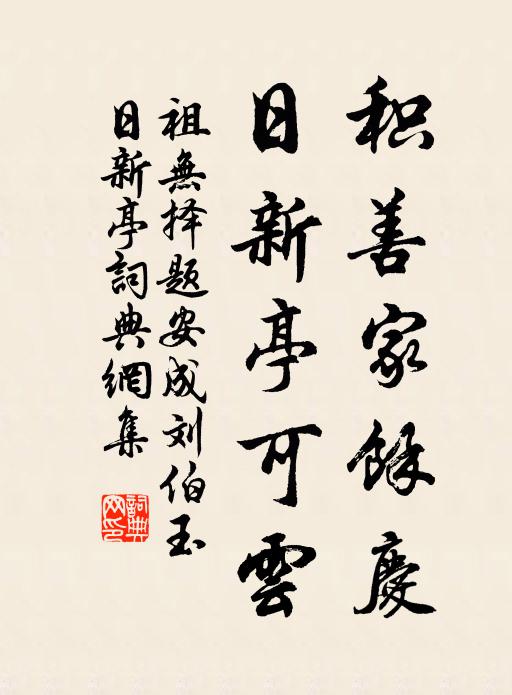 积善家餘慶
日新亭可雲
祖無择题安成刘伯玉
日新亭詞典網集
詞典网印